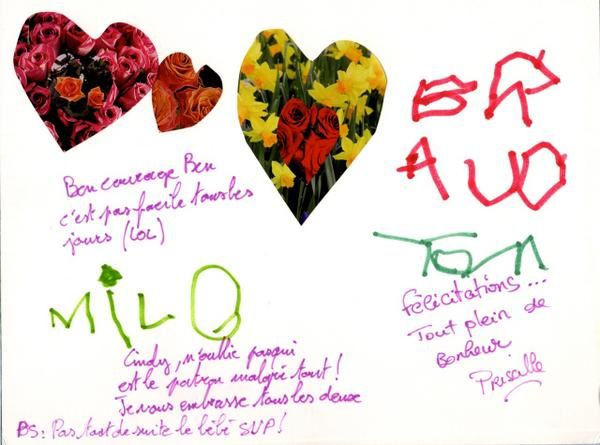 Bon courage Ben
c'est pas facile tous les
jours (LOL)
ER
AUD
TOM
MILO
félicitations...
Tout plein de
Bonheur
Priscille
Cindy, n'oublie pas qui
est le patron malgré tout !
Je vous embrasse tous les deux
PS: Pas tout de suite le bébé SVP !